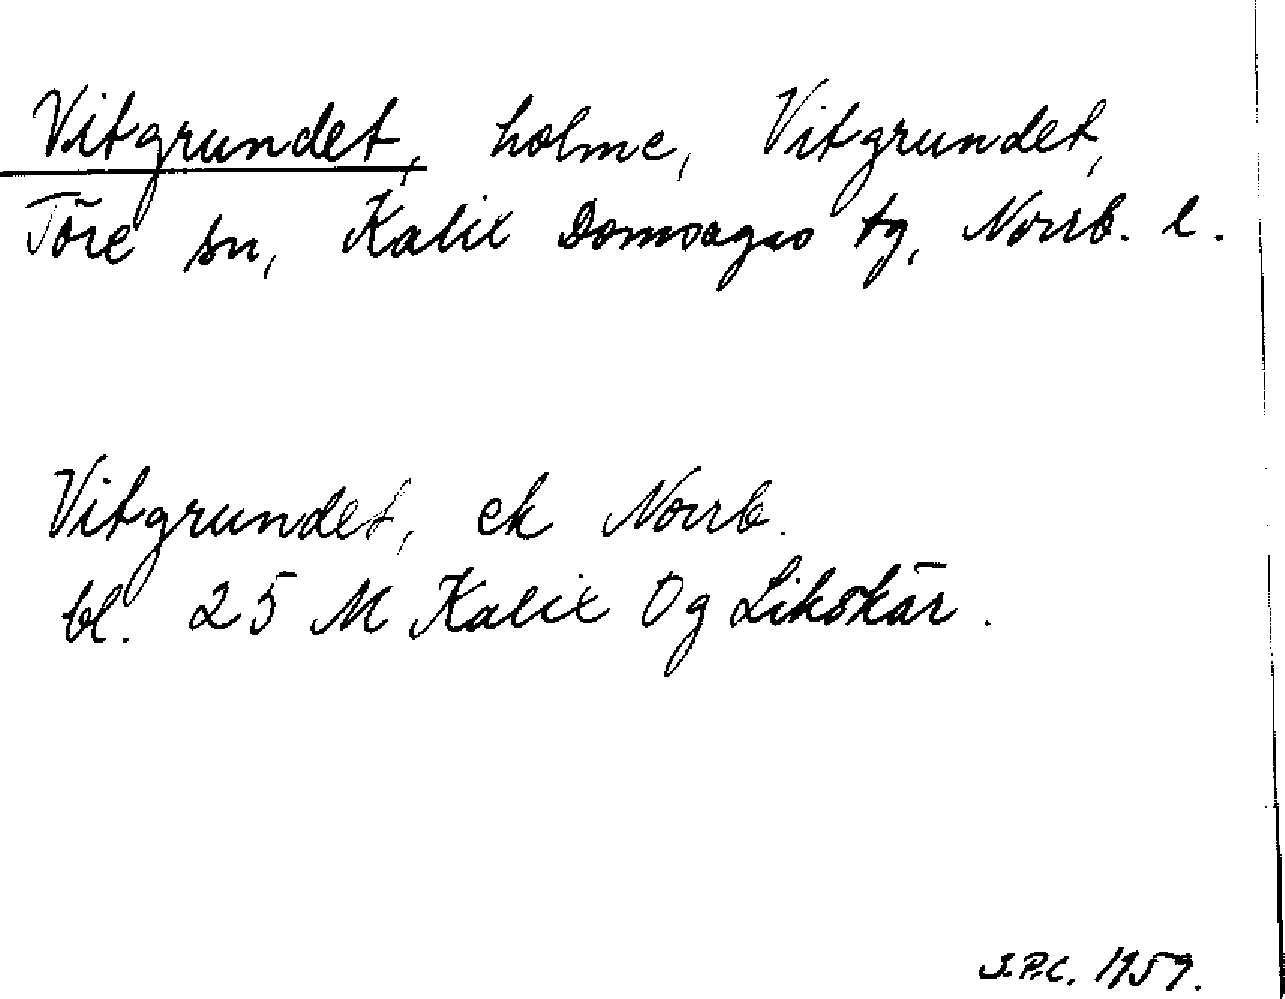 Vitgrundet, holme, Vitgrundet,
Töre sn, Kalix Domsagas tg, Norrb. l.
Vitgrundet, ek Norrb.
bl. 25 M Kalix Og Likskär.
J.P.C. 1959.